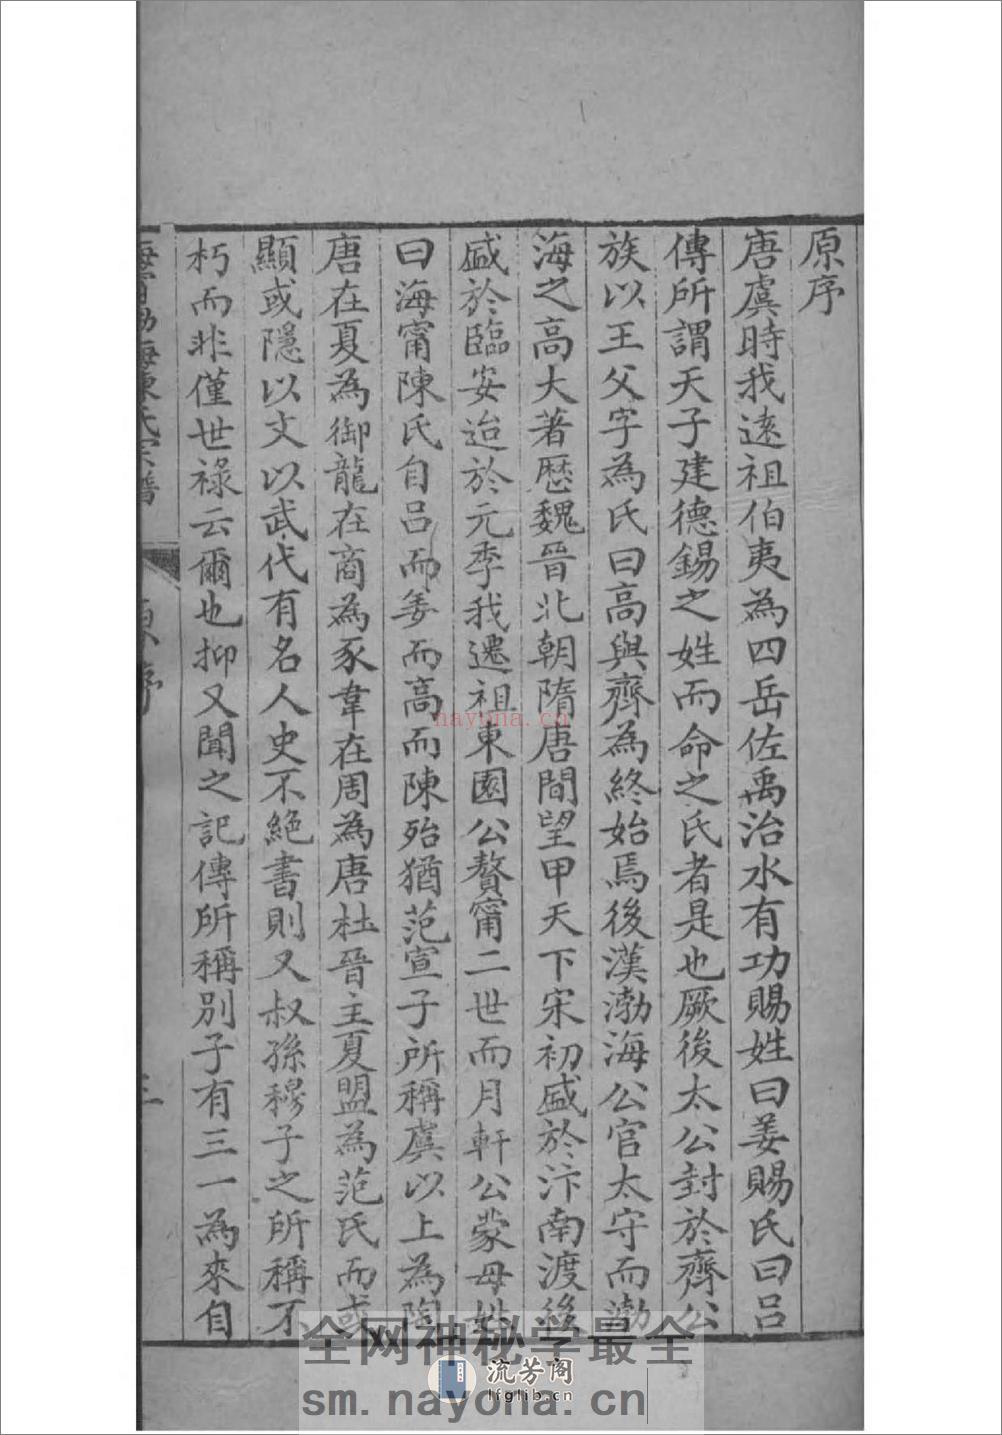 原序
唐虞時我遠祖伯夷為四岳佐禹治水有功賜姓曰姜賜氏曰呂
傳所謂天子建德錫之姓而命之氏者是也厥後太公封於齊公
族以王父字為氏曰高與齊為終始焉後漢渤海公官太守而渤
海之高大著歷魏晉北朝隋唐間望甲天下宋初盛於汴南渡後
盛於臨安迨於元季我遷祖東園公贅甯二世而月軒公蒙母姓
曰海甯陳氏自呂而姜而高而陳殆猶范宣子所稱虞以上為陶
唐在夏為御龍在商為豕韋在周為唐杜晉主夏盟為范氏而或
顯或隱以文以武代有名人史不絕書則又叔孫穆子之所稱不
朽而非僅世祿云爾也抑又聞之記傳所稱別子有三一為來自
海甯渤海陳氏宗譜 原序
nayona.cn
全网神秘学最全
流芳阁
lfglib.cn
sm.nayona.cn